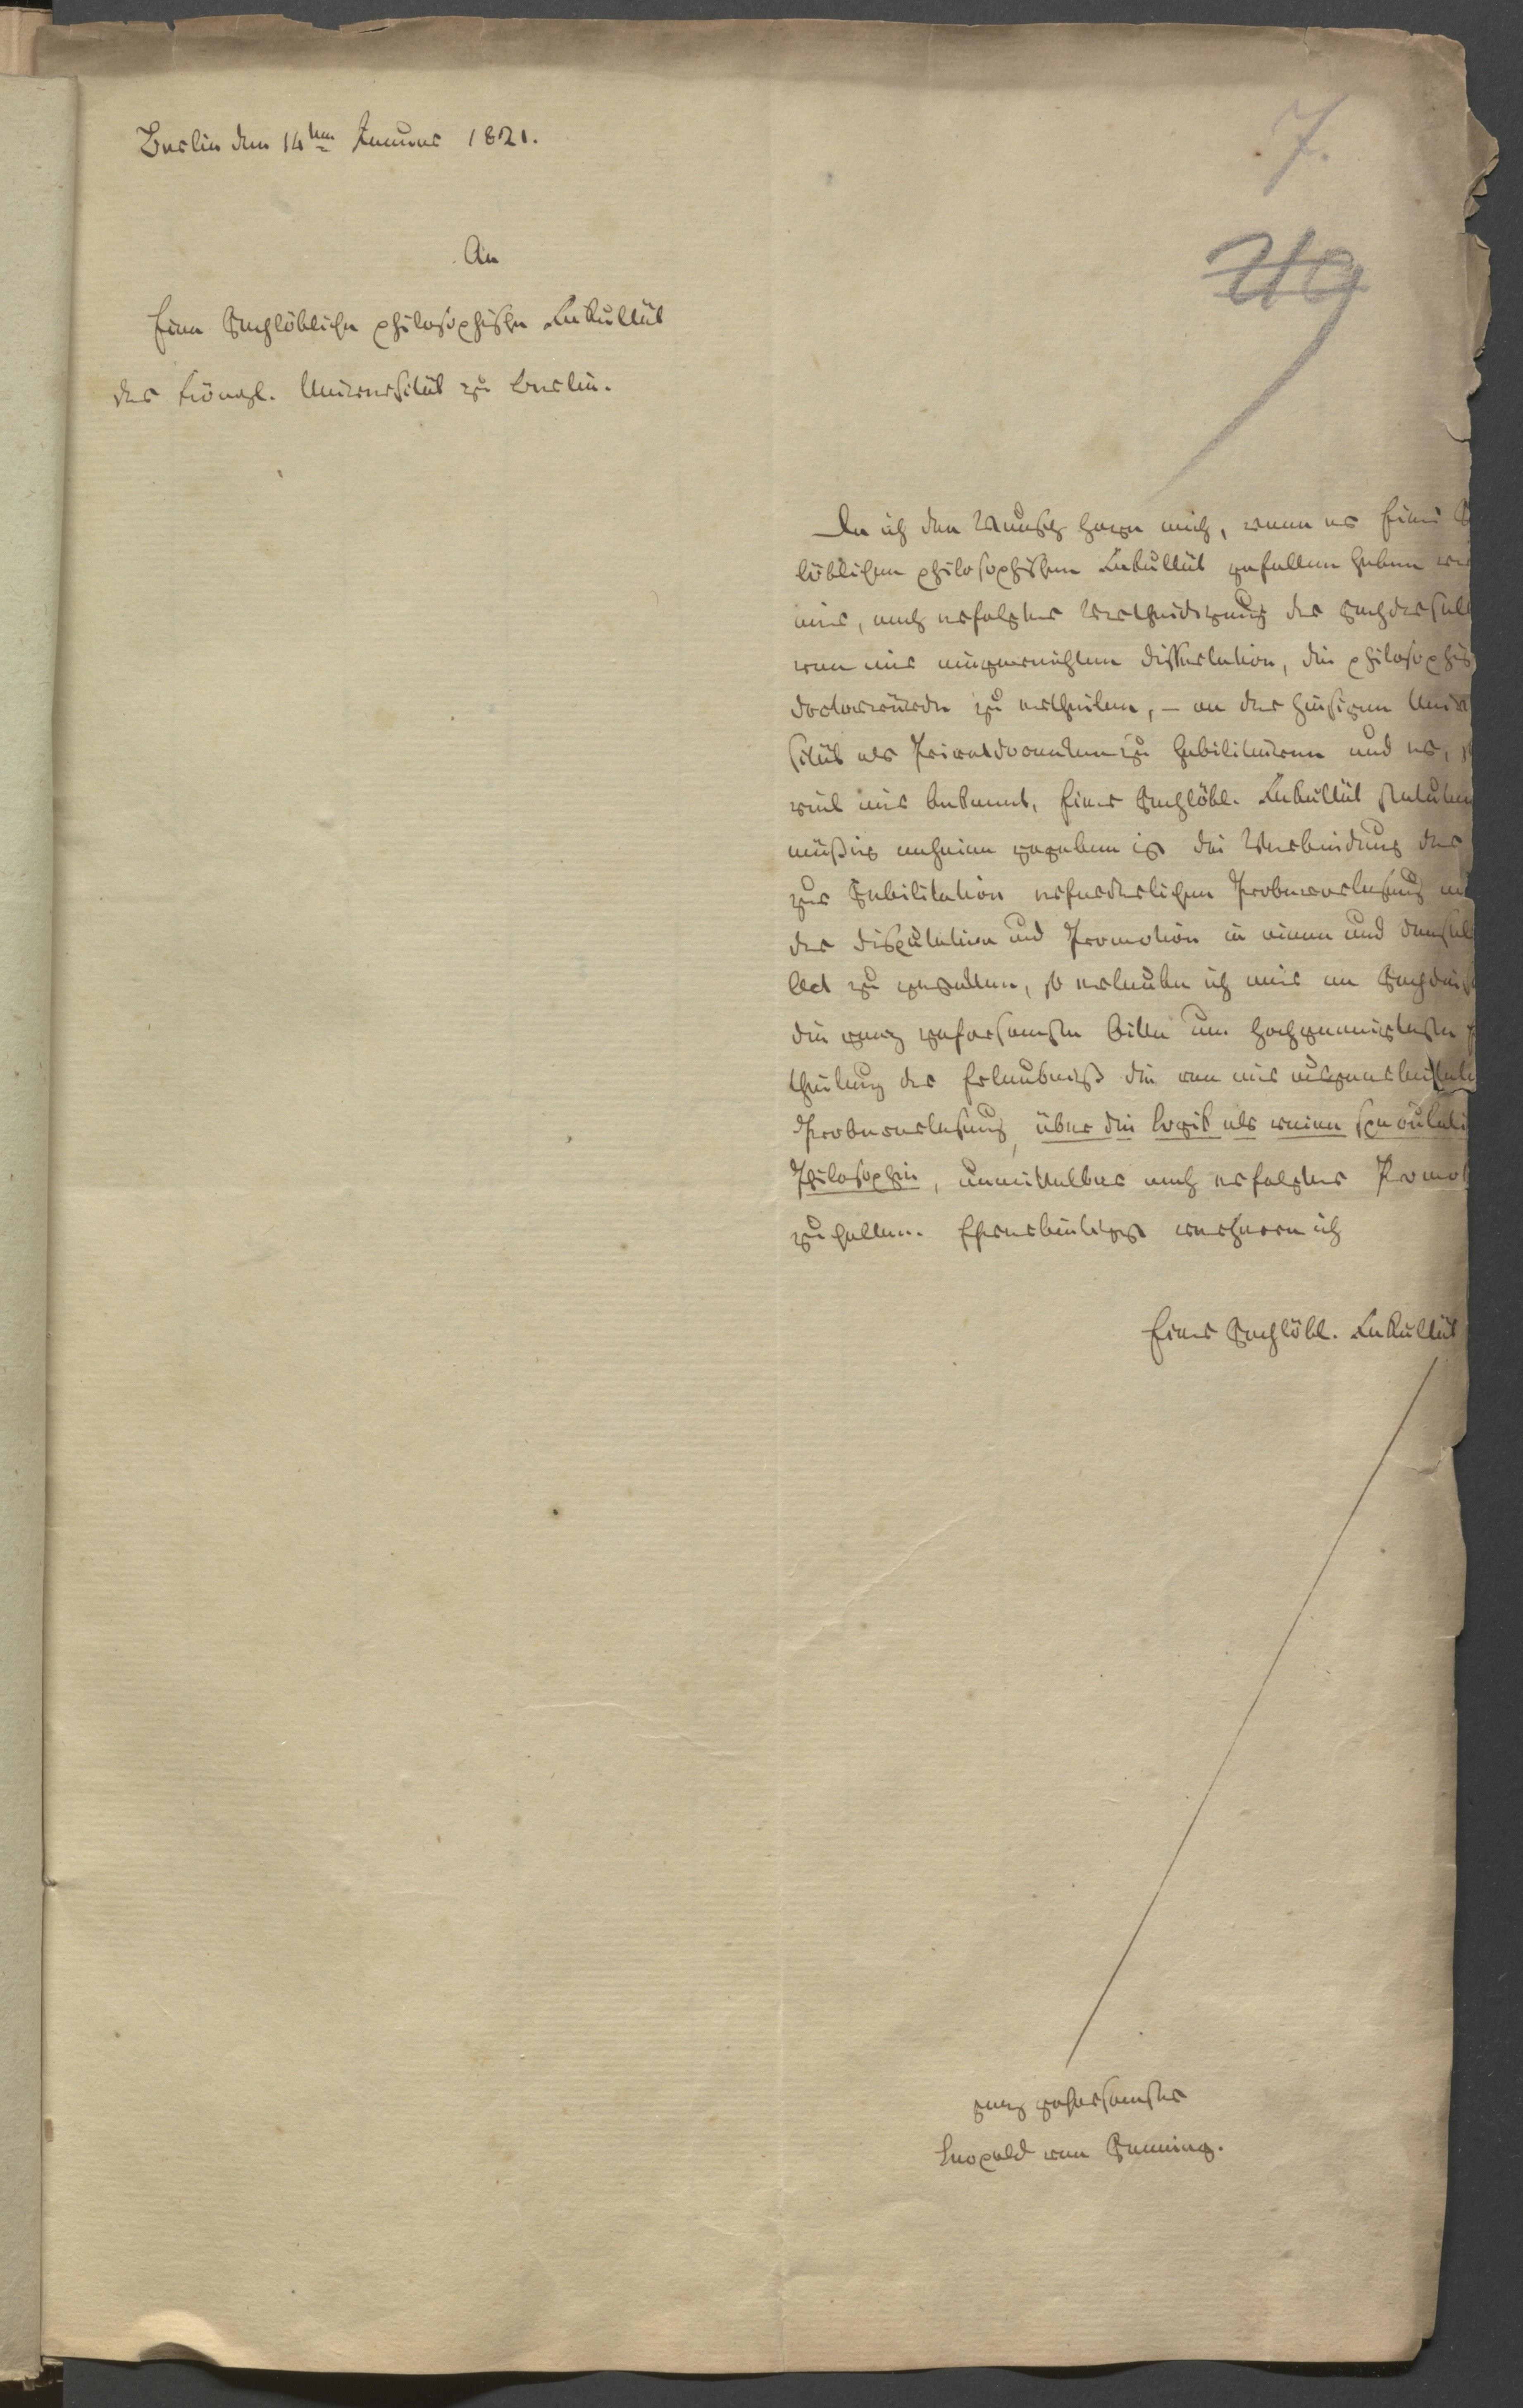 Berlin den 14ten Januar 1821.
7.
An
Eine Hochlöbliche philosophische Fakultät
der Königl. Universität zu Berlin.
Da ich den Wunsch hege mich, wenn es Einer H
löblichen philosophischen Fakultät gefallen haben wi
mir, nach erfolgter Vertheidigung der Hochdersel
von mir eingereichten Dissertation, die philosophis
Doctorwürde zu ertheilen, – an der hiesigen Univer
sität als Privatdocenten zu habilitieren und es, s
viel mir bekannt, Einer Hochlöbl. Fakultät statuten
mäßig anheim gegeben ist die Verbindung der
zur Habilitation erforderlichen Probevorlesung mi
der Disputation und Promotion in einem und demsel
Act zu gestatten, so erlaube ich mir an Hochdies
die ganz gehorsamste Bitte um hochgeneigteste E
theilung der Erlaubniß die von mir ausgearbeitete
Probevorlesung, über die Logik als reine speculati
Philosophie, unmittelbar nach erfolgter Promot
zu halten. Ehrerbietigst verharre ich
Einer Hochlöbl. Fakultät
ganz gehorsamster
Leopold von Henning.